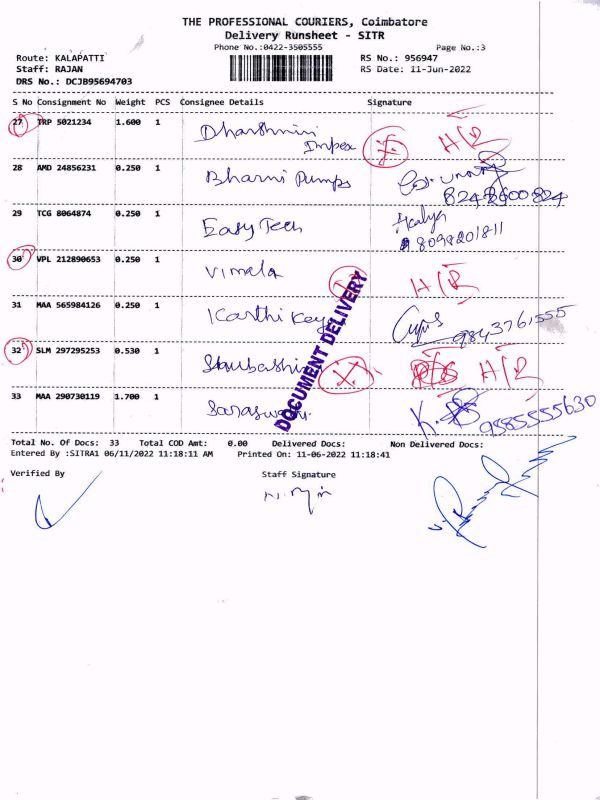 THE PROFESSIONAL COURIERS, Coimbatore
Delivery Runsheet - SITR
Phone No.:0422-3505555 Page No.:3
Route: KALAPATTI RS No.: 956947
Staff: RAJAN RS Date: 11-Jun-2022
DRS No.: DCJB95694703
S No Consignment No Weight PCS Consignee Details Signature
27 TRP 5021234 1.600 1 Dharshnini Impex H/R
28 AMD 24856231 0.250 1 Bharni Pumps
8248600824
29 TCG 8064874 0.250 1 Easy Tech
8098201811
30 VPL 212890653 0.250 1 Vimala H/R
31 MAA 565984126 0.250 1 Karthi Keya 9843761555
32 SLM 297295253 0.530 1 Shubashini H/R
33 MAA 290730119 1.700 1 Saraswathi. 9585555630
DOCUMENT DELIVERY
Total No. Of Docs: 33 Total COD Amt: 0.00 Delivered Docs: Non Delivered Docs:
Entered By :SITRA1 06/11/2022 11:18:11 AM Printed On: 11-06-2022 11:18:41
Verified By Staff Signature